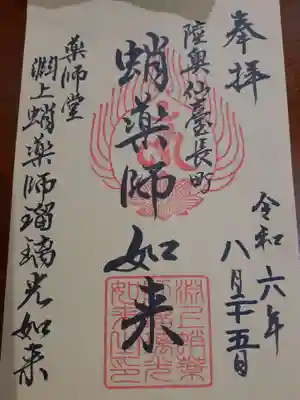 奉拝
令和六年
八月二十五日
陸奥仙臺長町
蛸薬師如来
薬師堂
淵上蛸薬師瑠璃光如来